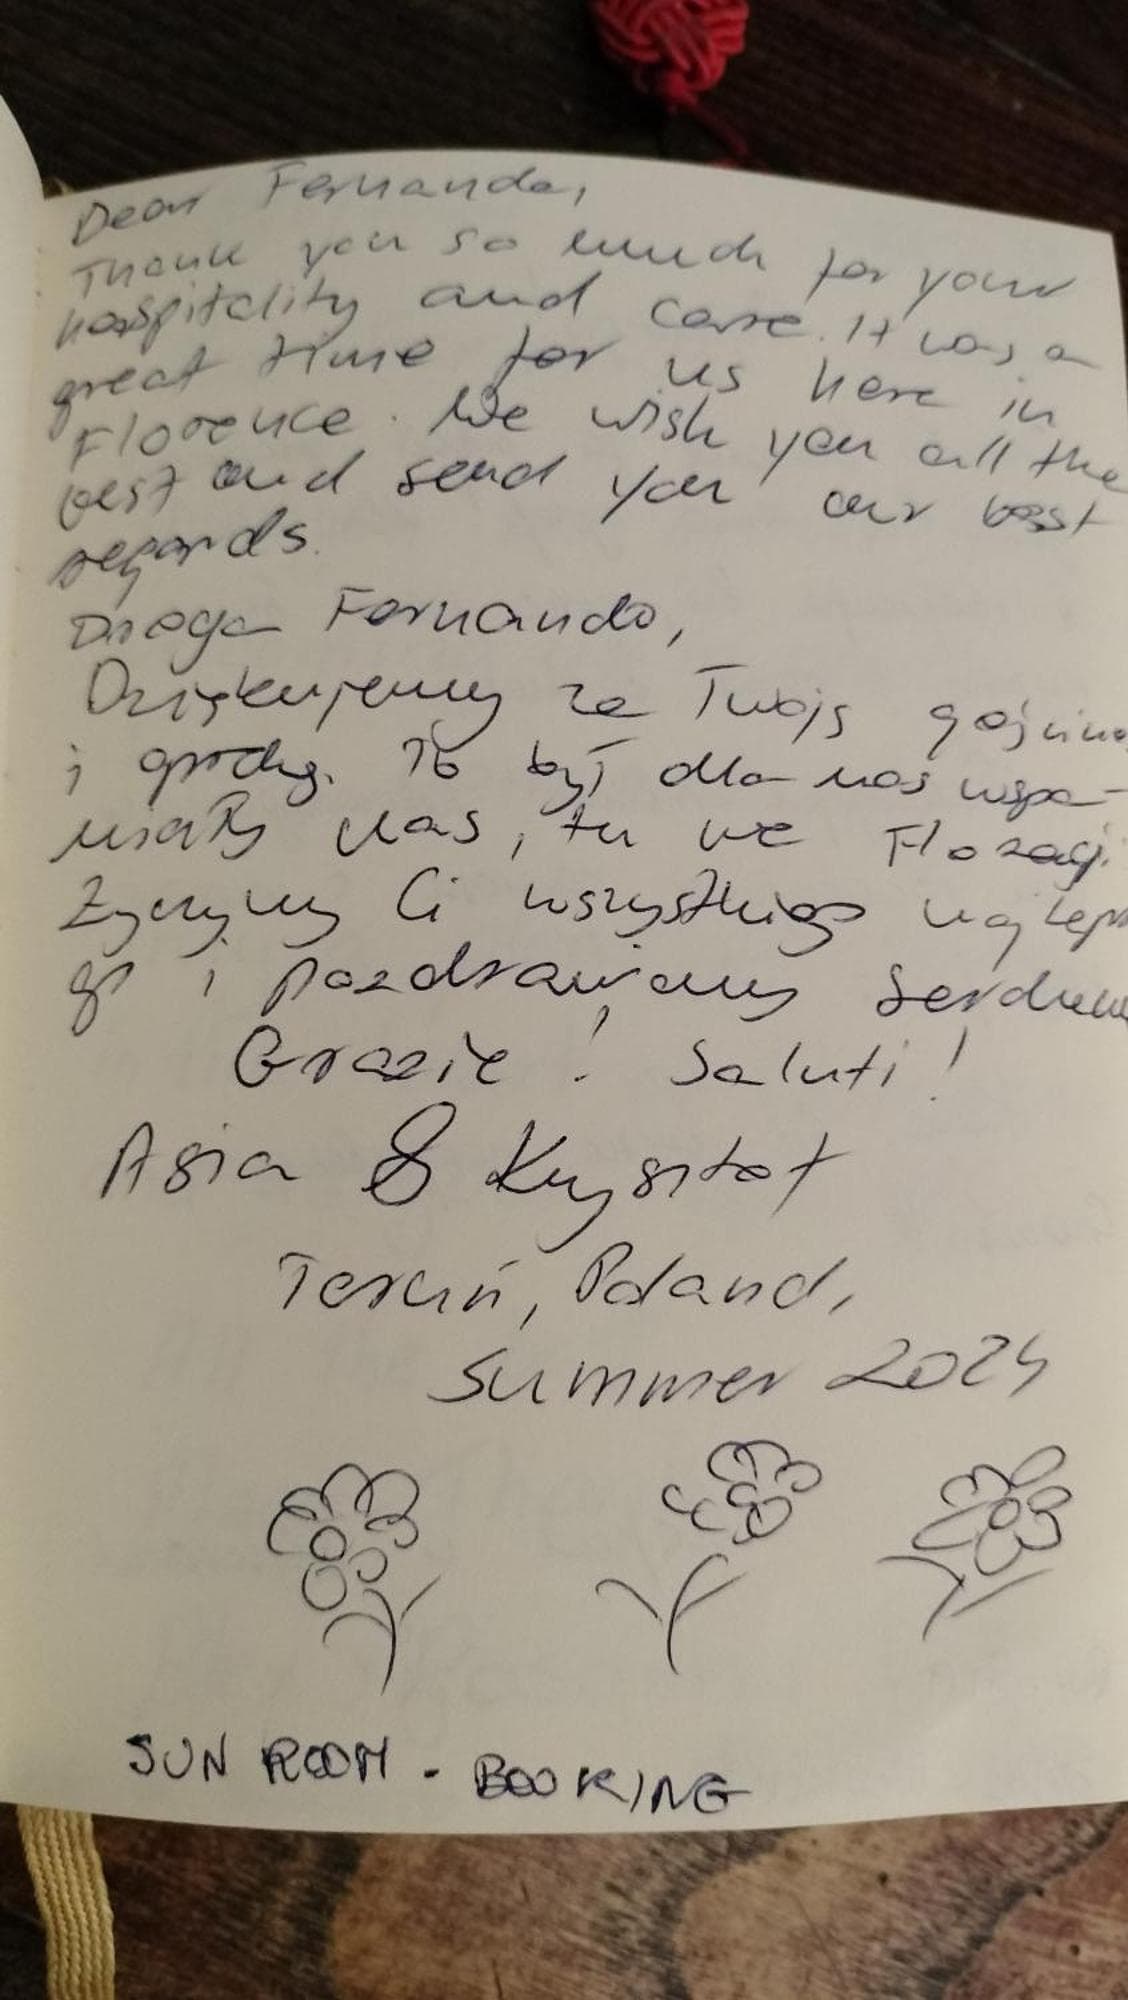 Dear Fernanda,
Thank you so much for your
hospitality and care. It was a
great time for us here in
Florence. We wish you all the
best and send you our best
regards.
Droga Fernando,
Dziękujemy za Twoją gościnno
i To był dla nas wspa-
niały czas, tu we
Życzymy Ci wszystkiego najlep
go i pozdrawiamy serdeczn
Grazie! Saluti!
Asia & Krzysztof
Toruń, Poland,
Summer 2024
SUN ROOM - BOOKING